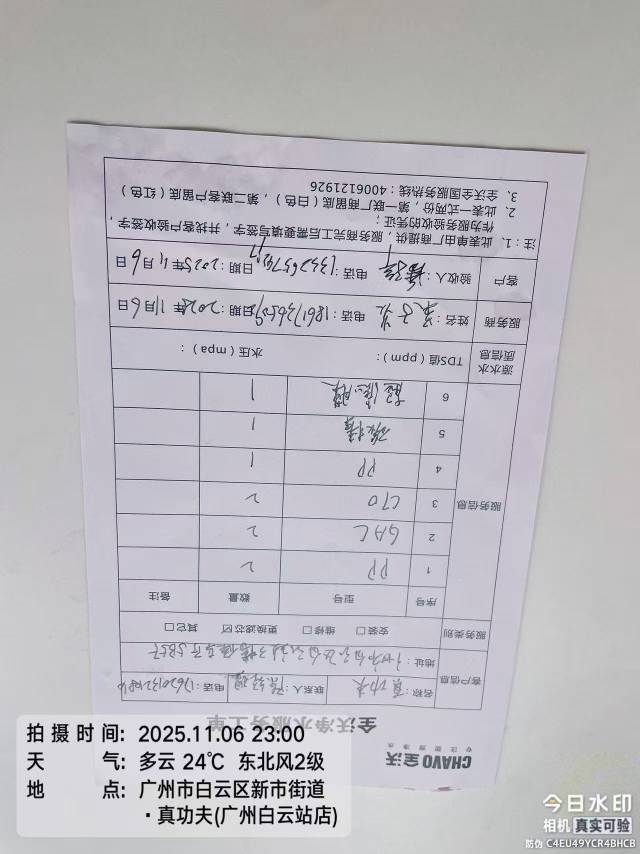 CHAVO 全沃
专注家用净水
全沃净水服务工单
客户信息
名称：真功夫 联系人：陈经理 电话：
地址：
服务类别 安装□ 维修□ 更换滤芯☑ 其它□
服务信息
序号 型号 数量 备注
1 PP 2
2 GAC 2
3 CTO 2
4 PP 1
5 1
6 超滤膜 1
源水水质信息 TDS值（ppm）： 水压（mpa）：
服务商 姓名： 电话：18617365509 日期：2025年11月6日
客户 验收人： 电话： 日期：2025年11月6日
注：1、此表单由厂商提供，服务商完工后需要填写签字，并找客户验收签字，
作为服务验收的凭证；
2、此表一式两份，第一联厂商留底（白色），第二联客户留底（红色）
3、全沃全国服务热线：4006121926
拍摄时间：2025.11.06 23:00
天气：多云 24℃ 东北风2级
地点：广州市白云区新市街道
·真功夫(广州白云站店)
今日水印
相机 真实可验
防伪 C4EU49YCR4BHCB